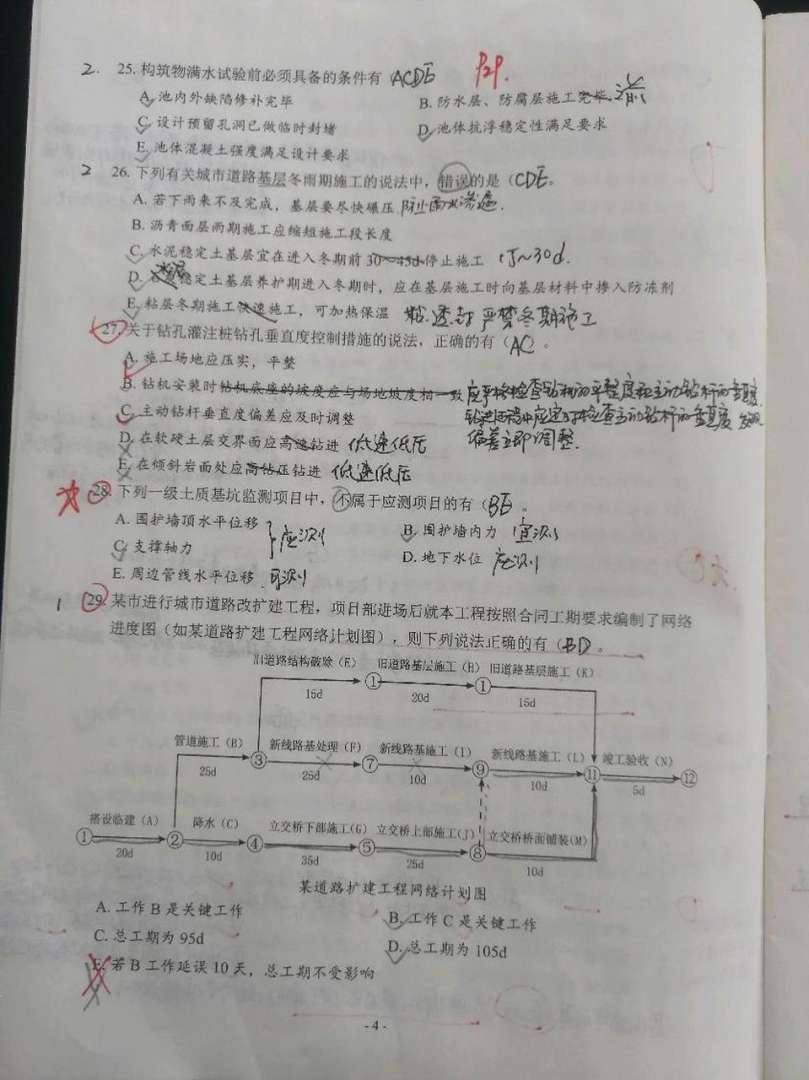 2. 25. 构筑物满水试验前必须具备的条件有 ACDE P29.
A. 池内外缺陷修补完毕 B. 防水层、防腐层施工完毕 之前
C. 设计预留孔洞已做临时封堵 D. 池体抗浮稳定性满足要求
E. 池体混凝土强度满足设计要求
2 26. 下列有关城市道路基层冬雨期施工的说法中，错误的是（CDE。
A. 若下雨来不及完成，基层要尽快碾压 防止雨水渗透.
B. 沥青面层雨期施工应缩短施工段长度
C. 水泥稳定土基层宜在进入冬期前 30~45d 停止施工 15~30d.
D. 稳定土基层养护期进入冬期时，应在基层施工时向基层材料中掺入防冻剂
E. 粘层冬期施工快速施工，可加热保温 粘.透.封 严禁冬期施工
27. 关于钻孔灌注桩钻孔垂直度控制措施的说法，正确的有（AC）。
A. 施工场地应压实，平整
B. 钻机安装时钻机底座的坡度应与场地坡度相一致 应严格检查钻机的平整度和主动钻杆的垂直度
C. 主动钻杆垂直度偏差应及时调整 钻进过程中应定时检查主动钻杆的垂直度 发现
D. 在软硬土层交界面应高速钻进 低速低压 偏差立即调整.
E. 在倾斜岩面处应高钻压钻进 低速低压
28. 下列一级土质基坑监测项目中，不属于应测项目的有（BE 。
A. 围护墙顶水平位移 B. 围护墙内力 宜测
C. 支撑轴力 应测 D. 地下水位 应测
E. 周边管线水平位移 可测
1 29. 某市进行城市道路改扩建工程，项目部进场后就本工程按照合同工期要求编制了网络
进度图（如某道路扩建工程网络计划图），则下列说法正确的有（BD 。
旧道路结构破除（E） 旧道路基层施工（H） 旧道路基层施工（K）
① ①
15d 20d 15d
管道施工（B） 新线路基处理（F） 新线路基施工（I） 新线路基施工（L） 竣工验收（N）
③ ⑦ ⑨ ⑪ ⑫
25d 25d 10d 10d 5d
搭设临建（A） 降水（C） 立交桥下部施工（G） 立交桥上部施工（J） 立交桥桥面铺装（M）
① ② ④ ⑤ ⑧
20d 10d 35d 25d 10d
某道路扩建工程网络计划图
A. 工作 B 是关键工作 B. 工作 C 是关键工作
C. 总工期为 95d D. 总工期为 105d
E. 若 B 工作延误 10 天，总工期不受影响
- 4 -